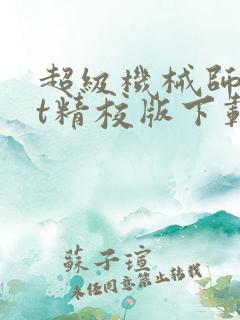 超級機械師
t精校版下載
蘇子瑄
未經同意禁止轉載